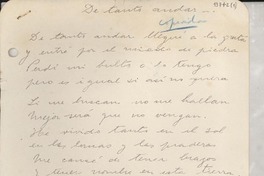 De tanto andar...
copiado
De tanto andar llegué a la grota
y entré por el
Perdí mi bulto o lo tengo
pero es igual si así no fuera
Lo me buscan no me hallan
Mejor será que no vengan.
He vivido tanto en el sol
en las lomas y las praderas
Me cansé de tener brazos
y tener nombre en esta tierra